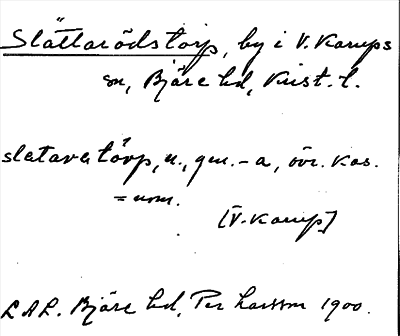 Slättarödstorp, by i V. Karups
sn, Bjäre hd, Krist. l.
slatava tårp, n., gm. -a, övr. kas.
= nom.
[V. Karup]
LAL. Bjäre hd, Per Larsson 1900.